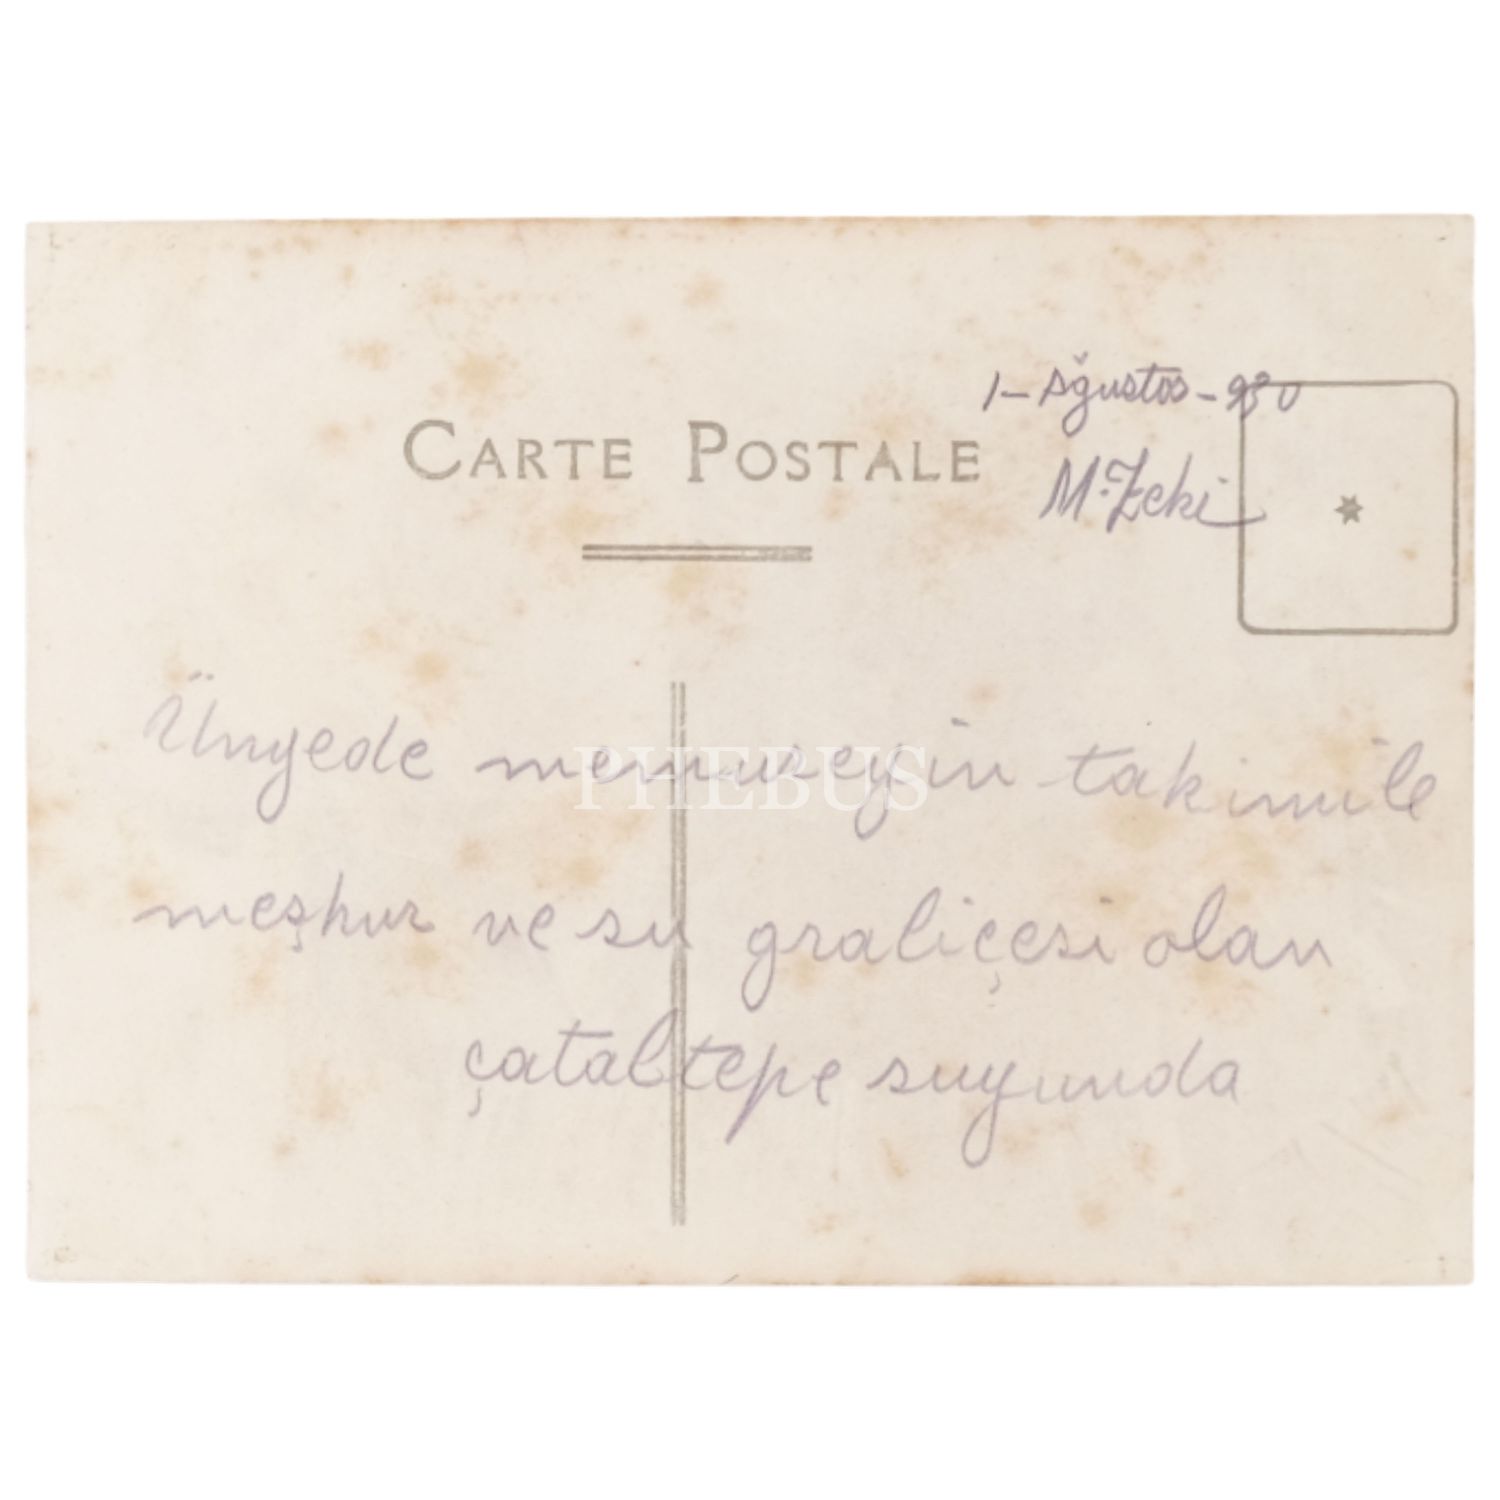 1 - Ağustos - 930
CARTE POSTALE
M. Zeki
Ünyede memureyin takimile
PHEBUS
meşhur ve su graliçesi olan
çataltepe suyunda